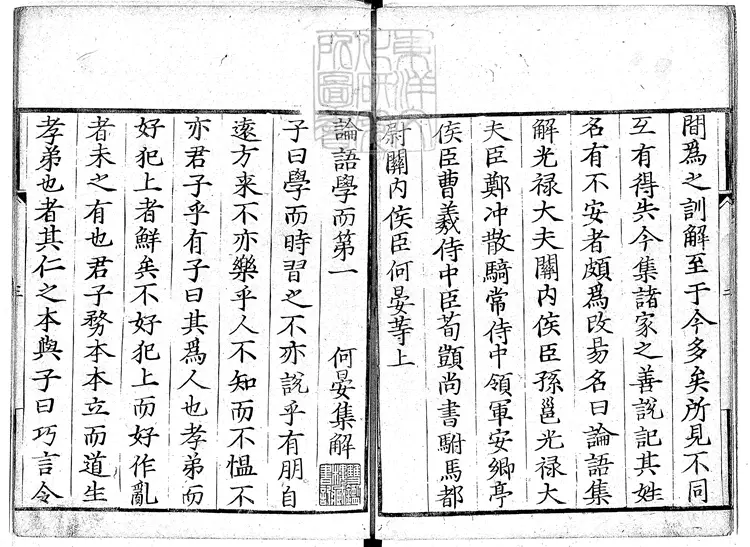 間爲之訓解至于今多矣所見不同
互有得失今集諸家之善說記其姓
名有不安者頗爲改易名曰論語集
解光禄大夫關内侯臣孫邕光禄大
夫臣鄭冲散騎常侍中領軍安鄉亭
侯臣曹羲侍中臣荀顗尚書駙馬都
尉關内侯臣何晏等上
論語學而第一 何晏集解
子曰學而時習之不亦說乎有朋自
遠方来不亦樂乎人不知而不愠不
亦君子乎有子曰其爲人也孝弟而
好犯上者鮮矣不好犯上而好作亂
者未之有也君子務本本立而道生
孝弟也者其仁之本與子曰巧言令
二
三